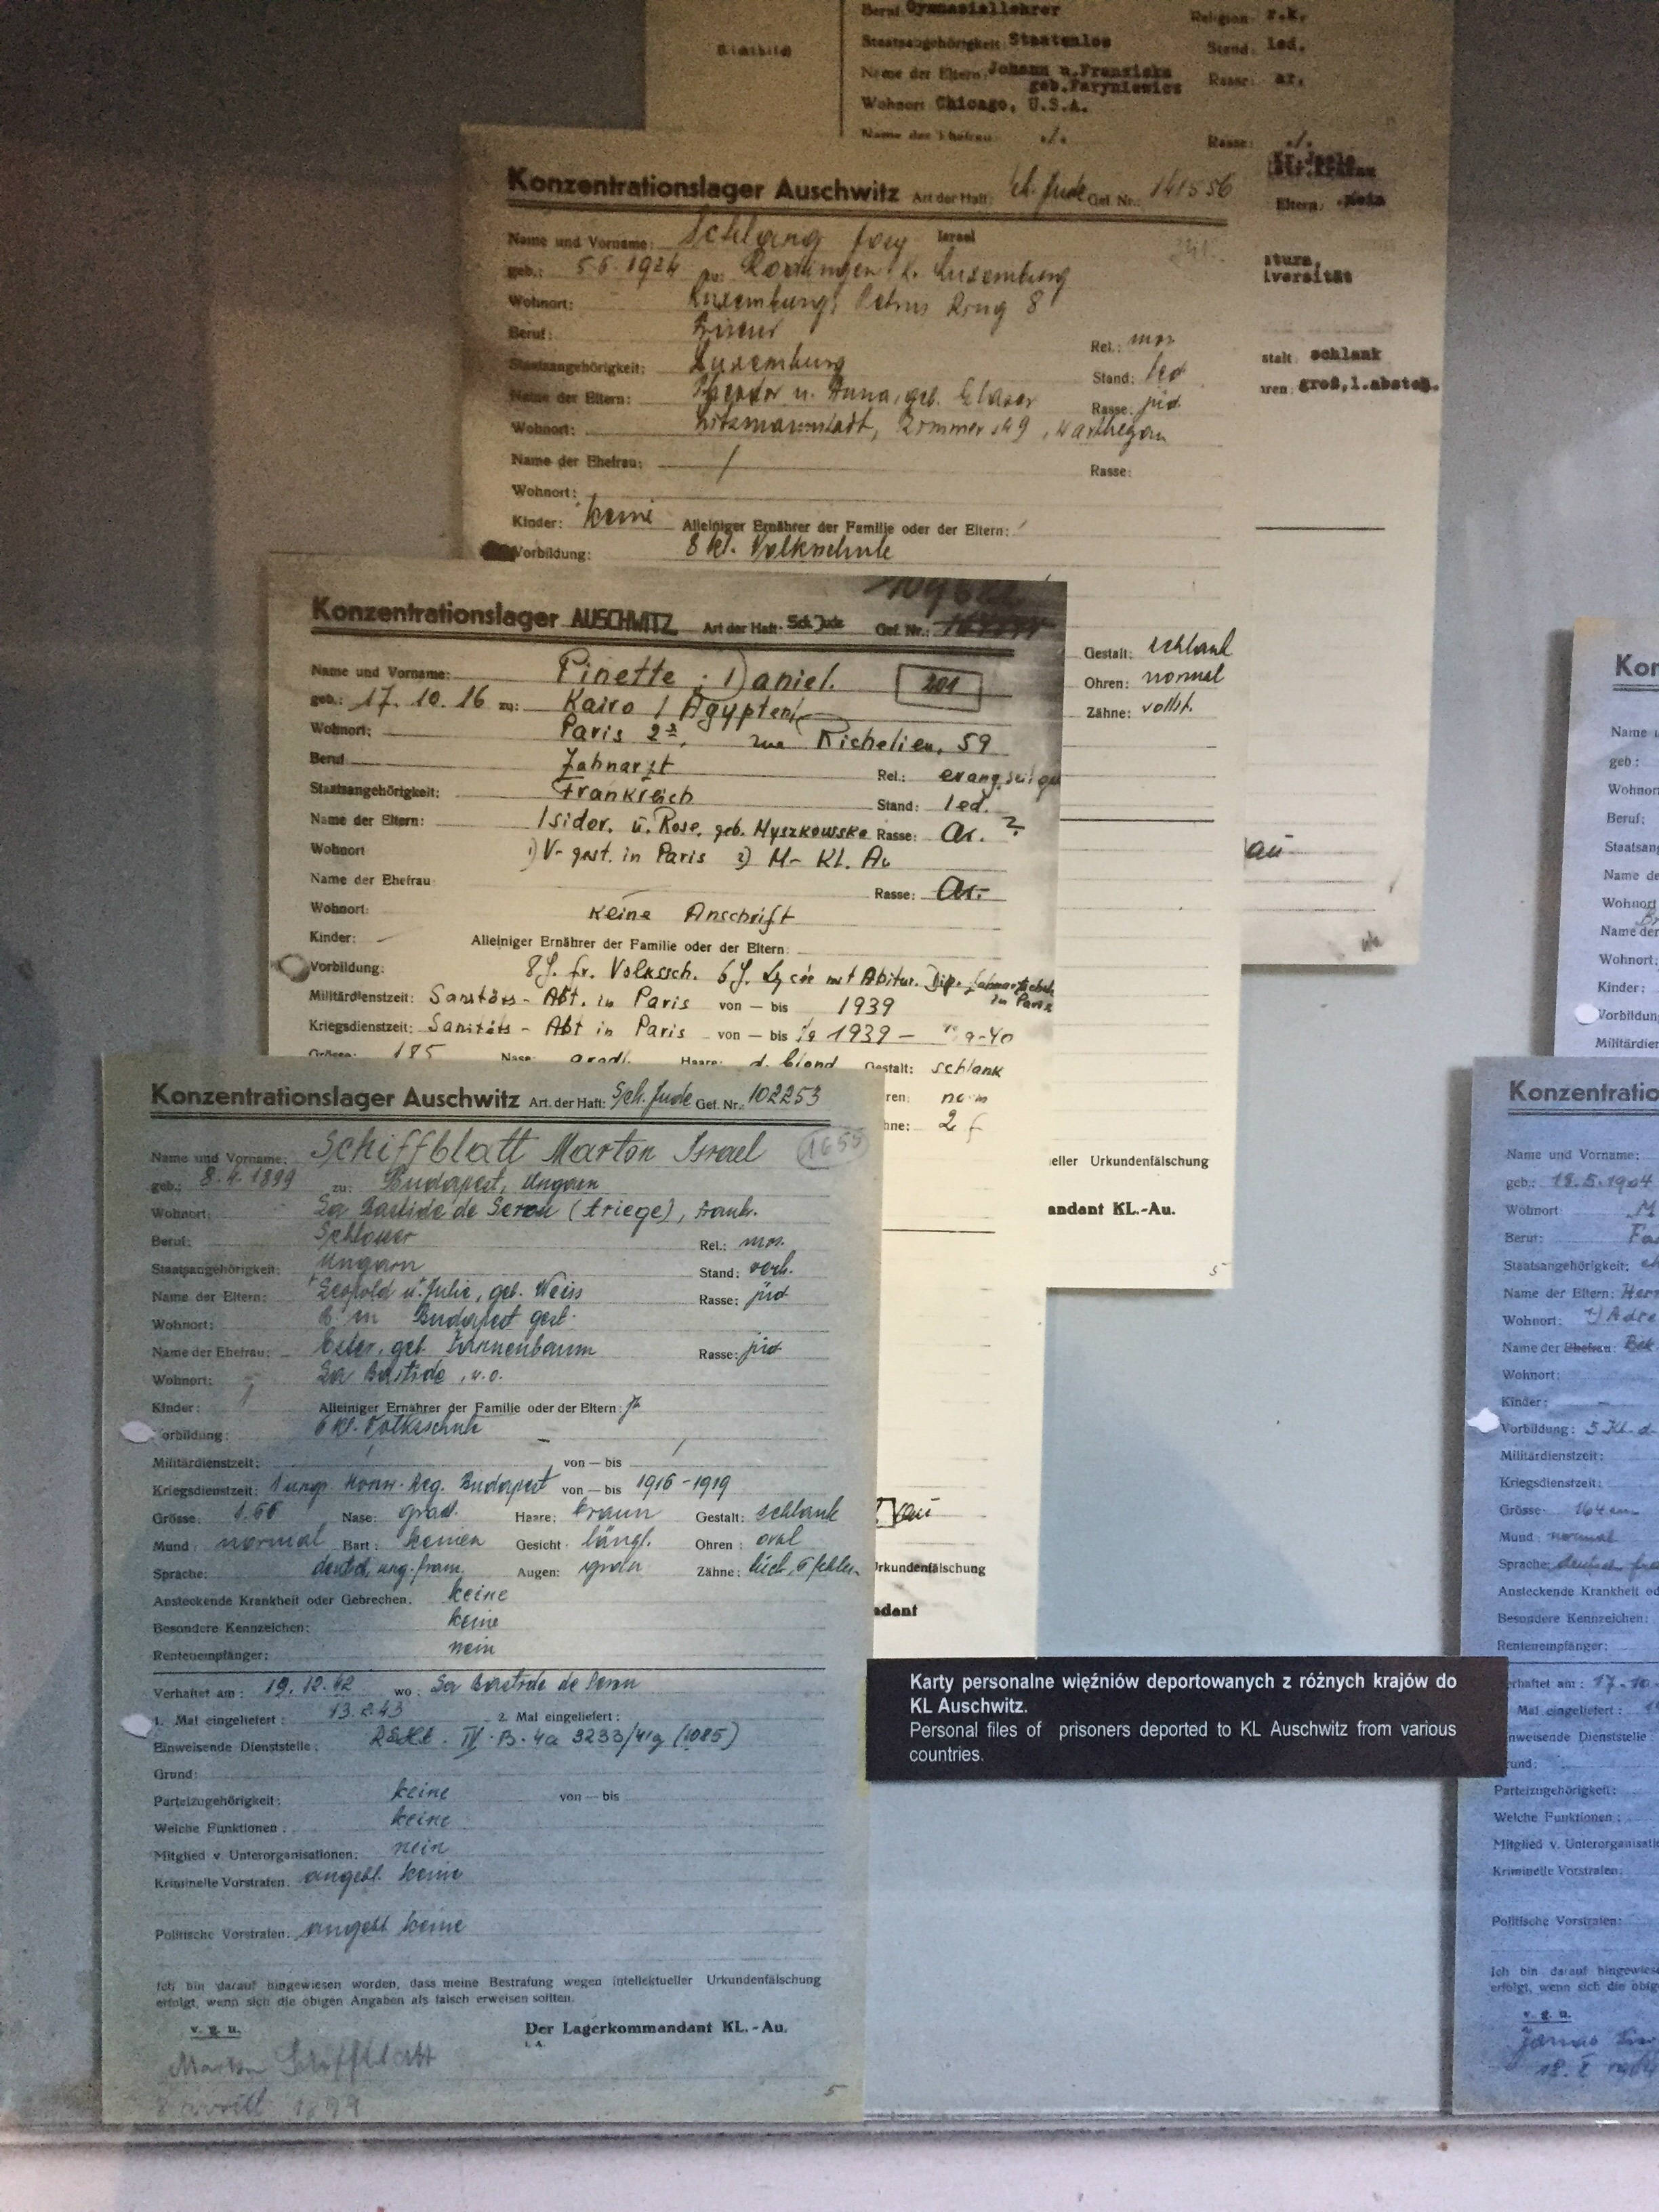 Beruf: Gymnasiallehrer Religion: r.k.
Staatsangehörigkeit: Staatenlos Stand: led.
Name der Eltern: Johann u.Franziska Rasse: ar.
geb.Faryniewicz
Wohnort Chicago, U.S.A.
Name der Ehefrau: ./. Rasse: ./.
Lichtbild
Eltern: nein
iversität
stalt: schlank
ren: groß,l.absteh.
Konzentrationslager Auschwitz Art der Haft: Jude Gef. Nr.: 141556
Name und Vorname: Schlang Israel
geb.: 5.6.1924 zu: Luxemburg
Wohnort: Luxemburg, Ring 8
Beruf:
Staatsangehörigkeit: Luxemburg Rel.: mos
Stand: led
Name der Eltern: Theodor u. Anna, geb. Glaser Rasse: jüd.
Wohnort: Litzmannstadt, Warthegau
Name der Ehefrau: / Rasse:
Wohnort:
Kinder: keine Alleiniger Ernährer der Familie oder der Eltern: /
Vorbildung: 8 kl. Volksschule
Gestalt: schlank
Ohren: normal
Zähne: vollst.
Konzentrationslager AUSCHWITZ Art der Haft: Sch. Jude Gef. Nr.:
Name und Vorname: Pinette, Daniel. 201
geb.: 17. 10. 16 zu: Kairo / Ägypten
Wohnort: Paris 2, rue Richelieu, 59
Beruf Zahnarzt Rel.: evang.
Staatsangehörigkeit: Frankreich Stand: led.
Name der Eltern: Isidor. u. Rose, geb. Myszkowska Rasse: ar. ?
Wohnort 1) V- gest. in Paris 2) M- KL. Au
Name der Ehefrau Rasse: ar.
Wohnort: keine Anschrift
Kinder: – Alleiniger Ernährer der Familie oder der Eltern:
Vorbildung: 8 J. fr. Volkssch. 6 J. Lycée mit Abitur. Dip.
in Paris
Militärdienstzeit: Sanitäts- Abt. in Paris von — bis 1939
Kriegsdienstzeit: Sanitäts - Abt in Paris von — bis 1939 - 9-40
Grösse: 185 Nase: gradl. Haare: d. blond Gestalt: schlank
ren: norm
hne: 2 f
eller Urkundenfälschung
andant KL.-Au.
5
Konzentrationslager Auschwitz Art. der Haft: Sch. Jude Gef. Nr.: 102253
Name und Vorname: Schiffblatt Marton Israel 1655
geb.: 8.4.1899 zu: Budapest, Ungarn
Wohnort: La Bastide de Serou (Ariege), Frank.
Beruf: Schlosser Rel.: mos.
Staatsangehörigkeit: Ungarn Stand: verh.
Name der Eltern: Leopold u. Julie, geb. Weiss Rasse: jüd
Wohnort: B. in Budapest gest.
Name der Ehefrau: Ester, geb. Tannenbaum Rasse: jüd
Wohnort: La Bastide, w.o.
Kinder: 1 Alleiniger Ernährer der Familie oder der Eltern: ja
orbildung: 6 kl. Volksschule
Militärdienstzeit: / von — bis /
Kriegsdienstzeit: 1 ung. Honv. Reg. Budapest von — bis 1916 - 1919
Grösse: 1.66 Nase: grad. Haare: braun Gestalt: schlank
Mund: normal Bart: keinen Gesicht: längl. Ohren: oval
Sprache: deutsch, ung. franz. Augen: grau Zähne: lück., 6 fehlen
Ansteckende Krankheit oder Gebrechen: keine
Besondere Kennzeichen: keine
Rentenempfänger: nein
Verhaftet am: 19.12.42 wo: La Bastide de Serou
1. Mal eingeliefert: 13.2.43 2. Mal eingeliefert:
Einweisende Dienststelle: RSHA. IV. B. 4a 3233/41g (1085)
Grund:
Parteizugehörigkeit: keine von — bis
Welche Funktionen: keine
Mitglied v. Unterorganisationen: nein
Kriminelle Vorstrafen: angebl. keine
Politische Vorstrafen: angebl. keine
Ich bin darauf hingewiesen worden, dass meine Bestrafung wegen intellektueller Urkundenfälschung
erfolgt, wenn sich die obigen Angaben als falsch erweisen sollten.
v. g. u. Der Lagerkommandant KL.-Au.
i. A.
Marton Schiffblatt
8 avrill 1899
5
Urkundenfälschung
ndant
Karty personalne więźniów deportowanych z różnych krajów do
KL Auschwitz.
Personal files of prisoners deported to KL Auschwitz from various
countries.
Kon
Name u
geb:
Wohnort
Beruf:
Staatsang
Name de
Wohnort
Name der
Wohnort:
Kinder:
Vorbildung
Militärdien
Konzentratio
Name und Vorname:
geb.: 18.5.1904
Wohnort:
Beruf:
Staatsangehörigkeit:
Name der Eltern:
Wohnort:
Name der Ehefrau:
Wohnort:
Kinder: –
Vorbildung: 5 Kl. d.
Militärdienstzeit:
Kriegsdienstzeit:
Grösse: 164 cm
Mund: normal
Sprache: deutsch
Ansteckende Krankheit od
Besondere Kennzeichen:
Rentenempfänger:
erhaftet am: 17.10.
Mal eingeliefert:
nweisende Dienststelle:
rund:
Parteizugehörigkeit:
Welche Funktionen:
Mitglied v. Unterorganisati
Kriminelle Vorstrafen:
Politische Vorstrafen:
Ich bin darauf hingewies
erfolgt, wenn sich die obig
v. g. u.